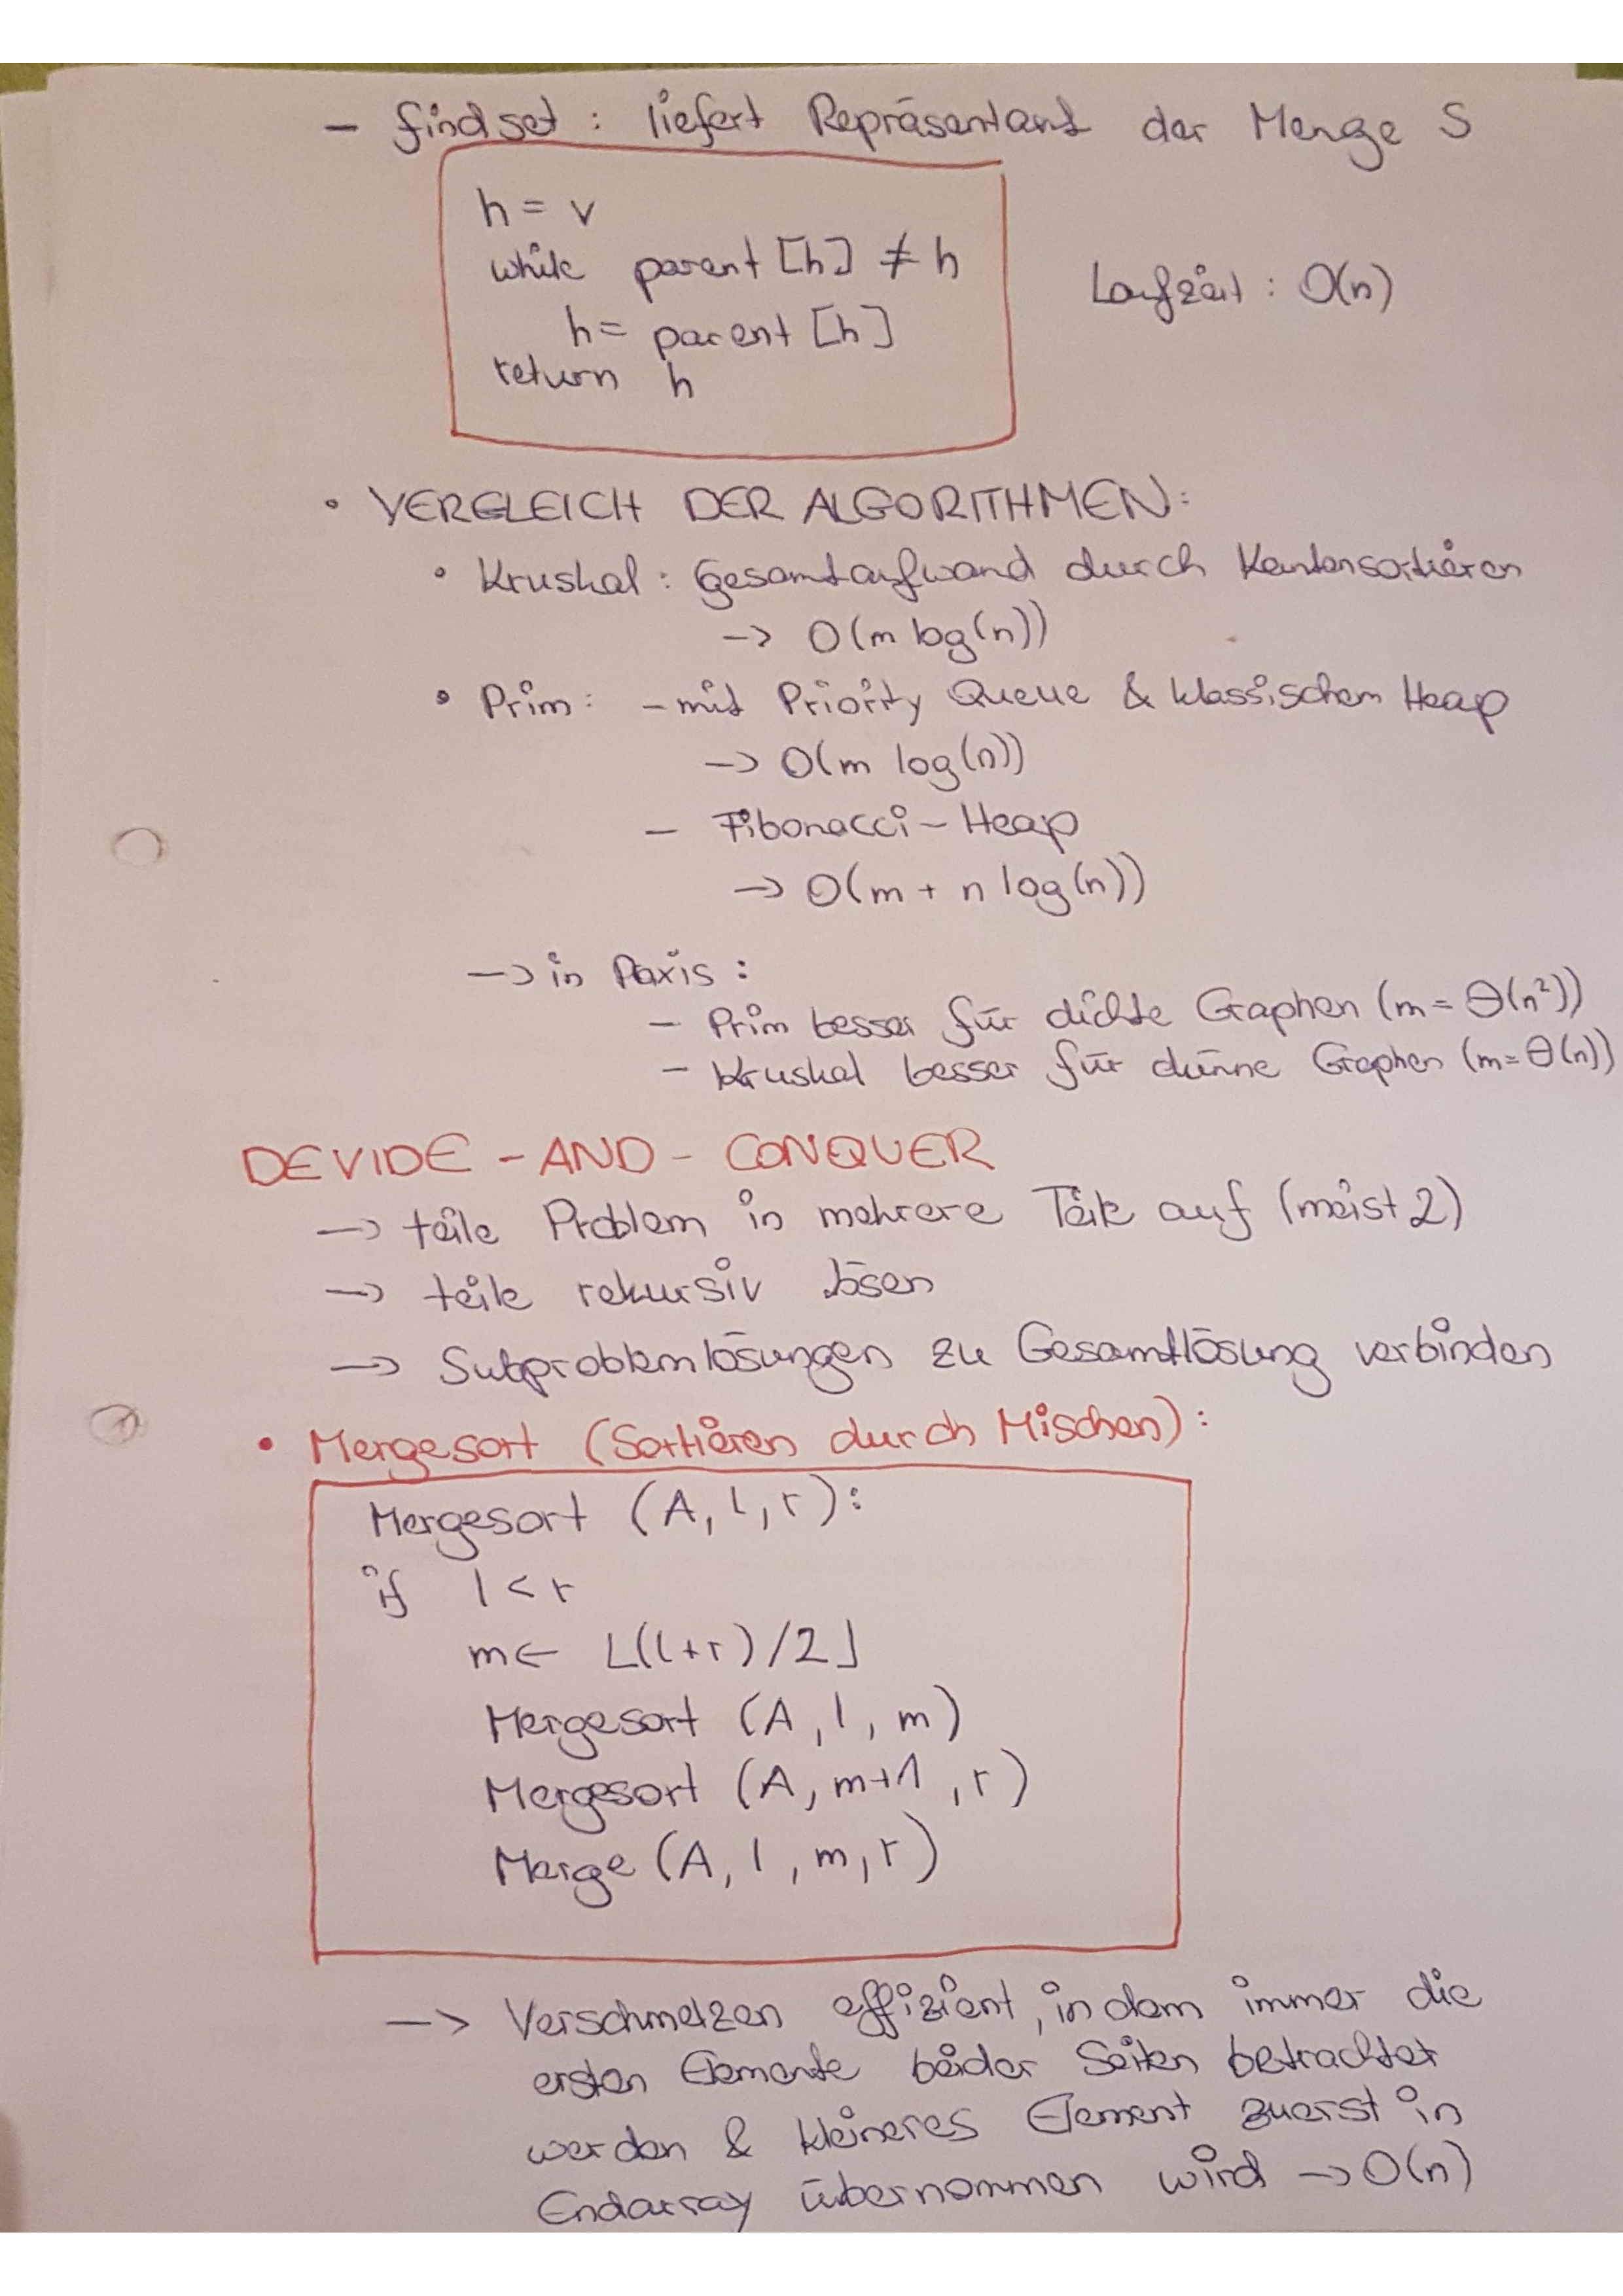 - findset : liefert Repräsentant der Menge S
h = v
while parent [h] ≠ h
h = parent [h]
return h
Laufzeit : O(n)
• VERGLEICH DER ALGORITHMEN:
• Kruskal : Gesamtaufwand durch Kantensortieren
-> O(m log(n))
• Prim: - mit Priority Queue & klassischem Heap
-> O(m log(n))
- Fibonacci-Heap
-> O(m + n log(n))
-> in Paxis :
- Prim besser für dichte Graphen (m = Θ(n²))
- Kruskal besser für dünne Graphen (m = Θ(n))
DEVIDE - AND - CONQUER
-> teile Problem in mehrere Teile auf (meist 2)
-> teile rekursiv lösen
-> Subproblemlösungen zu Gesamtlösung verbinden
• Mergesort (Sortieren durch Mischen) :
Mergesort (A, l, r) :
if l < r
m ← ⌊(l+r)/2⌋
Mergesort (A, l, m)
Mergesort (A, m+1, r)
Merge (A, l, m, r)
-> Verschmelzen effizient, in dem immer die
ersten Elemente beider Seiten betrachtet
werden & kleineres Element zuerst in
Endarray übernommen wird -> O(n)